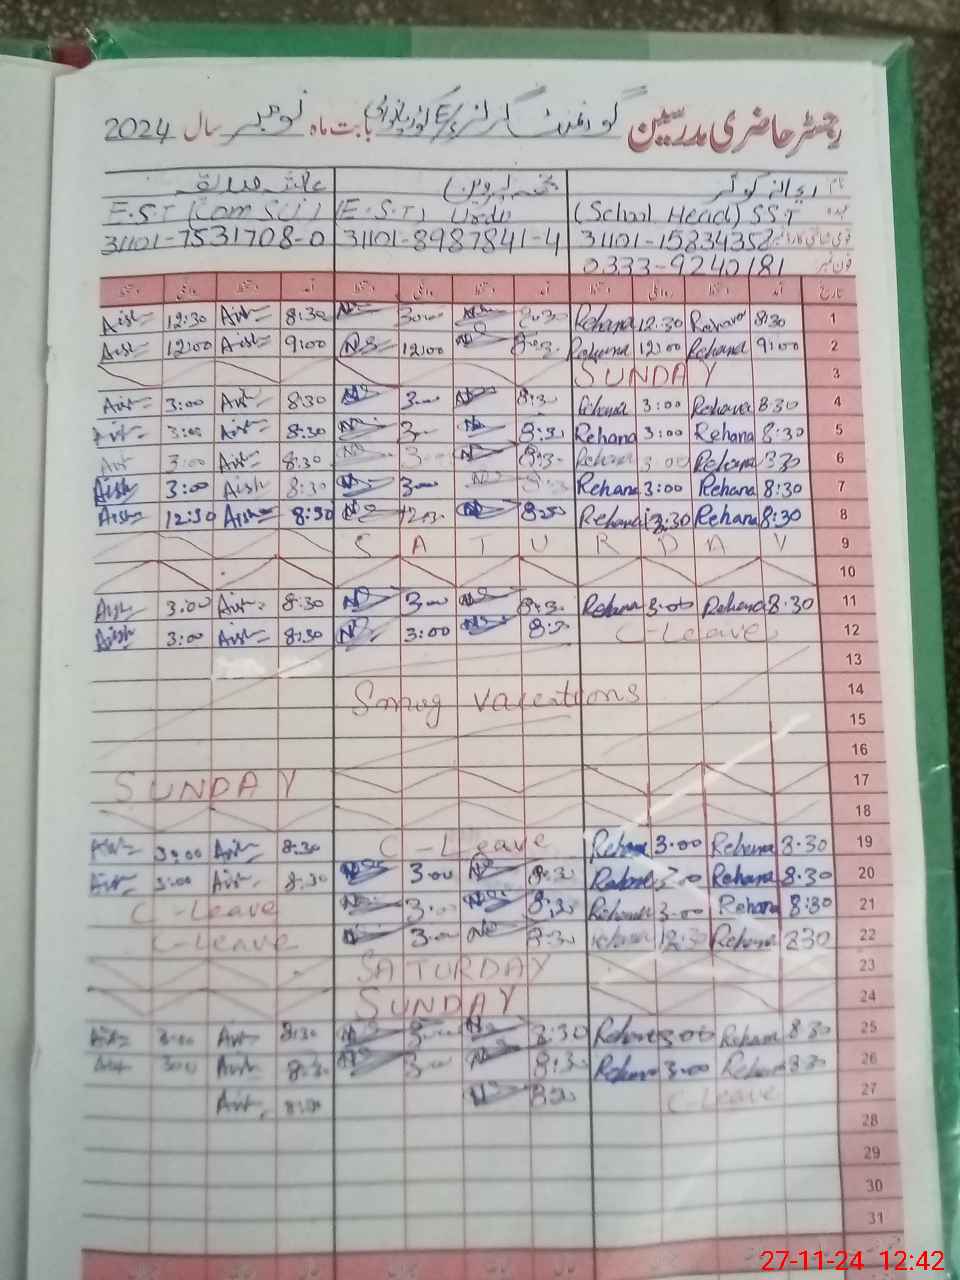 رجسٹر حاضری مدرسین گورنمنٹ گرلز بابت ماہ نومبر سال 2024
نام ریحانہ کوثر نجمہ پروین عائشہ صدیقہ
عہدہ (School Head) SST (E.S.T) Urdu E.S.T (Com Sci)
31101-7531708-0 31101-8987841-4 31101-15834358
فون نمبر 0333-9240181
تاریخ آمد دستخط روانگی دستخط آمد دستخط روانگی دستخط آمد دستخط روانگی دستخط
Aish 12:30 Aish 8:30 NS 3:00 NS 8:30 Rehana 12:30 Rehana 8:30 1
Aish 12:00 Aish 9:00 NS 12:00 NS Rehana 12:00 Rehana 9:00 2
SUNDAY 3
Aish 3:00 Aish 8:30 NS 3:00 NS 8:30 Rehana 3:00 Rehana 8:30 4
Aish 3:00 Aish 8:30 NS 3:00 NS 8:30 Rehana 3:00 Rehana 8:30 5
Aish 3:00 Aish 8:30 NS 3:00 NS 8:30 Rehana 3:00 Rehana 830 6
Aish 3:00 Aish 8:30 NS 3:00 NS 8:30 Rehana 3:00 Rehana 8:30 7
Aish 12:30 Aish 8:30 NS 1230 NS 8:30 Rehana 12:30 Rehana 8:30 8
SATURDAY 9
10
Aish 3:00 Aish 8:30 NS 3:00 NS 8:30 Rehana 3:00 Rehana 8:30 11
Aish 3:00 Aish 8:30 NS 3:00 NS 8:30 C-Leave 12
13
Smog vacations 14
15
16
SUNDAY 17
18
Aish 3:00 Aish 8:30 C-Leave Rehana 3:00 Rehana 8:30 19
Aish 3:00 Aish 8:30 NS 3:00 NS 8:30 Rehana 3:00 Rehana 8:30 20
C-Leave NS 3:00 NS 8:30 Rehana 3:00 Rehana 8:30 21
C-Leave NS 3:00 NS 8:30 Rehana 12:30 Rehana 830 22
SATURDAY 23
SUNDAY 24
Aish 3:00 Aish 8:30 NS 3:00 NS 8:30 Rehana 3:00 Rehana 8:30 25
Aish 3:00 Aish 8:30 NS 3:00 NS 8:30 Rehana 3:00 Rehana 8:30 26
Aish 8:30 NS 8:30 C-Leave 27
28
29
30
31
27-11-24 12:42